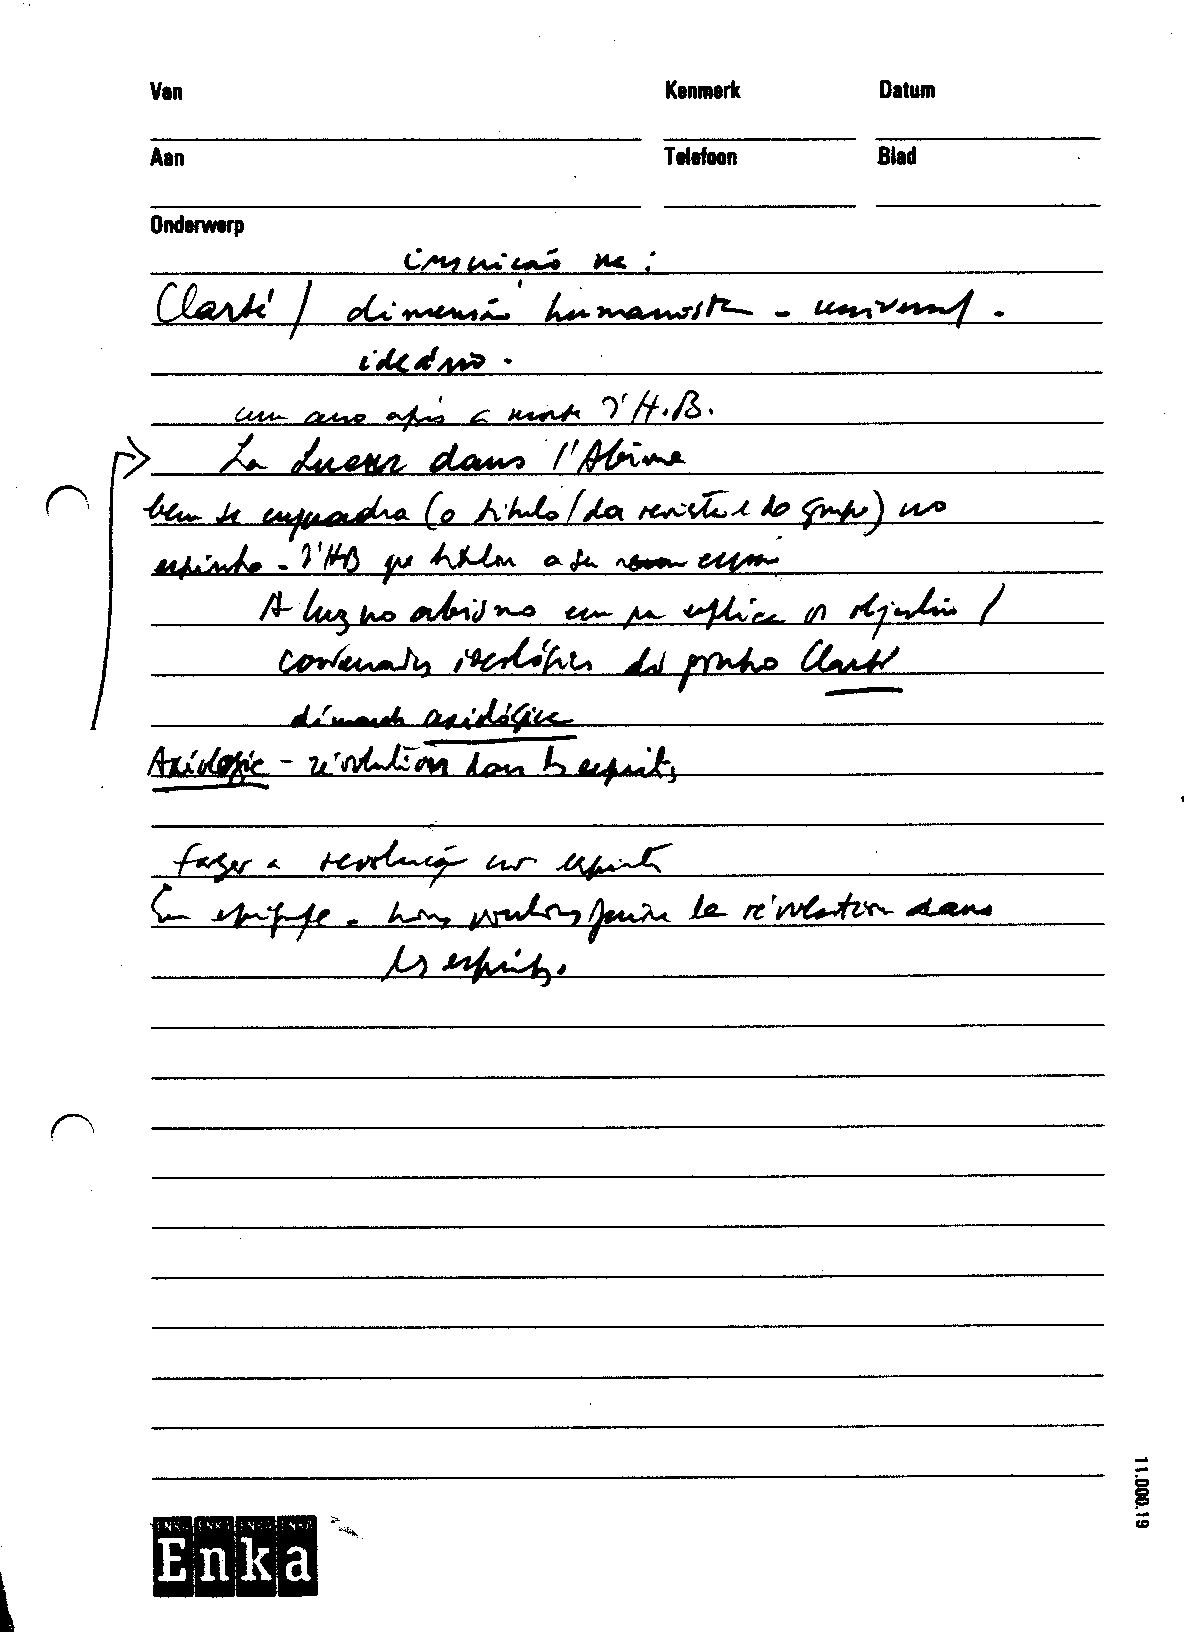 Van Kenmerk Datum
Aan Telefoon Blad
Onderwerp
inscrição na :
Clarté / dimensão humanista - universal.
ideário.
um ano após a morte d'H.B.
La Lueur dans l'Abîme
bem se enquadra (o título / da revista e do grupo) no
espírito - d'HB que
A luz no abismo em que explica os objectivos /
ideológicos do grupo Clarté
démarche axiológica
Axiologie - révolution dans les esprits
fazer a revolução nos espíritos
Em epígrafe - Nous voulons faire la révolution dans
les esprits.
11.000.19
Enka